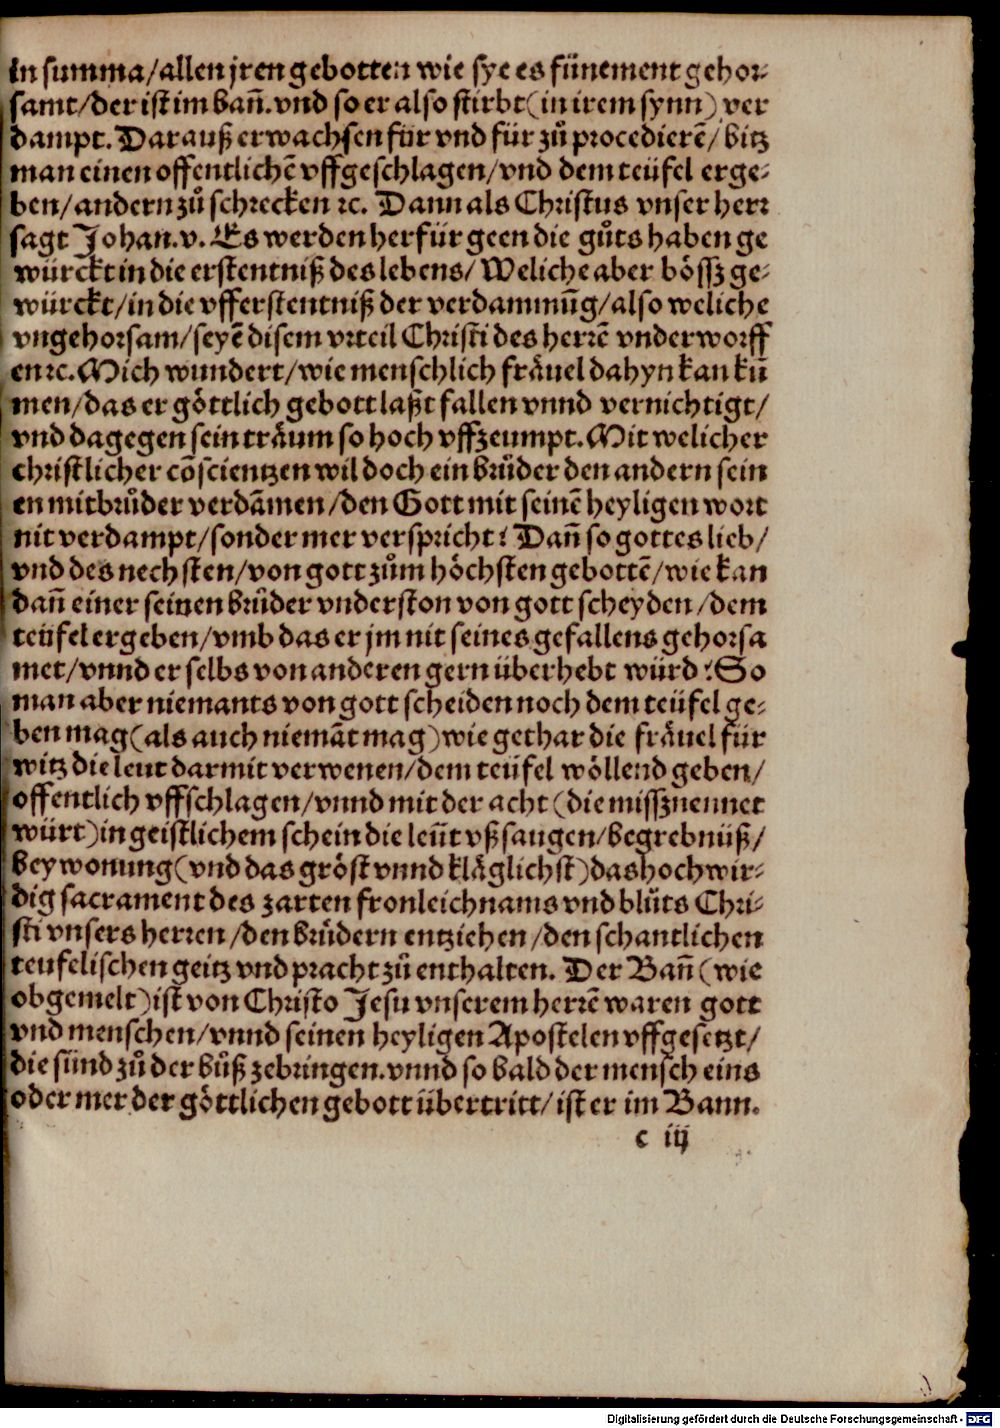 in summa/allen jren gebotten wie sye es fünement gehor⸗
samt/der ist im bañ. vnd so er also stirbt(in irem synn) ver
dampt. Darauß erwachsen für vnd für zů procedierē/bitz
man einen offentlichē vffgeschlagen/vnd dem teüfel erge⸗
ben/andern zů schrecken ꝛc. Dann als Christus vnser herr
sagt Johan.v. Es werden herfür geen die gůts haben ge
würckt in die erstentniß des lebens/Weliche aber bössz ge⸗
würckt/in die vfferstentniß der verdammūg/also weliche
vngehorsam/seyē disem vrteil Christi des herrē vnderworff
en ꝛc. Mich wundert/wie menschlich fräuel dahyn kan kū
men/das er göttlich gebott laßt fallen vnnd vernichtigt/
vnd dagegen sein träum so hoch vffzeumpt. Mit welicher
christlicher cōscientzen wil doch ein brůder den andern sein
en mitbrůder verdāmen/den Gott mit seinē heyligen wort
nit verdampt/sonder mer verspricht? Dañ so gottes lieb/
vnd des nechsten/von gott zům höchsten gebottē/wie kan
dañ einer seinen brůder vnderston von gott scheyden/dem
teüfel ergeben/vmb das er jm nit seines gefallens gehorsa
met/vnnd er selbs von anderen gern überhebt würd? So
man aber niemants von gott scheiden noch dem teüfel ge⸗
ben mag(als auch niemāt mag)wie gethar die fräuel für
witz die leut darmit verwenen/dem teüfel wöllend geben/
offentlich vffschlagen/vnnd mit der acht (die misszuennet
würt)in geistlichem schein die leüt vßsaugen/begrebnüß/
beywonung(vnd das gröst vnnd kläglichst)das hochwir⸗
dig sacrament des zarten fronleichnams vnd blůts Chri⸗
sti vnsers herren/den brůdern entziehen/den schantlichen
teufelischen geitz vnd pracht zů enthalten. Der Bañ (wie
obgemelt)ist von Christo Jesu vnserem herrē waren gott
vnd menschen/vnnd seinen heyligen Apostelen vffgesetzt/
die sünd zů der bůß zebringen. vnnd so bald der mensch eins
oder mer der göttlichen gebott übertritt/ist er im Bann.
c iij
Digitalisierung gefördert durch die Deutsche Forschungsgemeinschaft - DFG